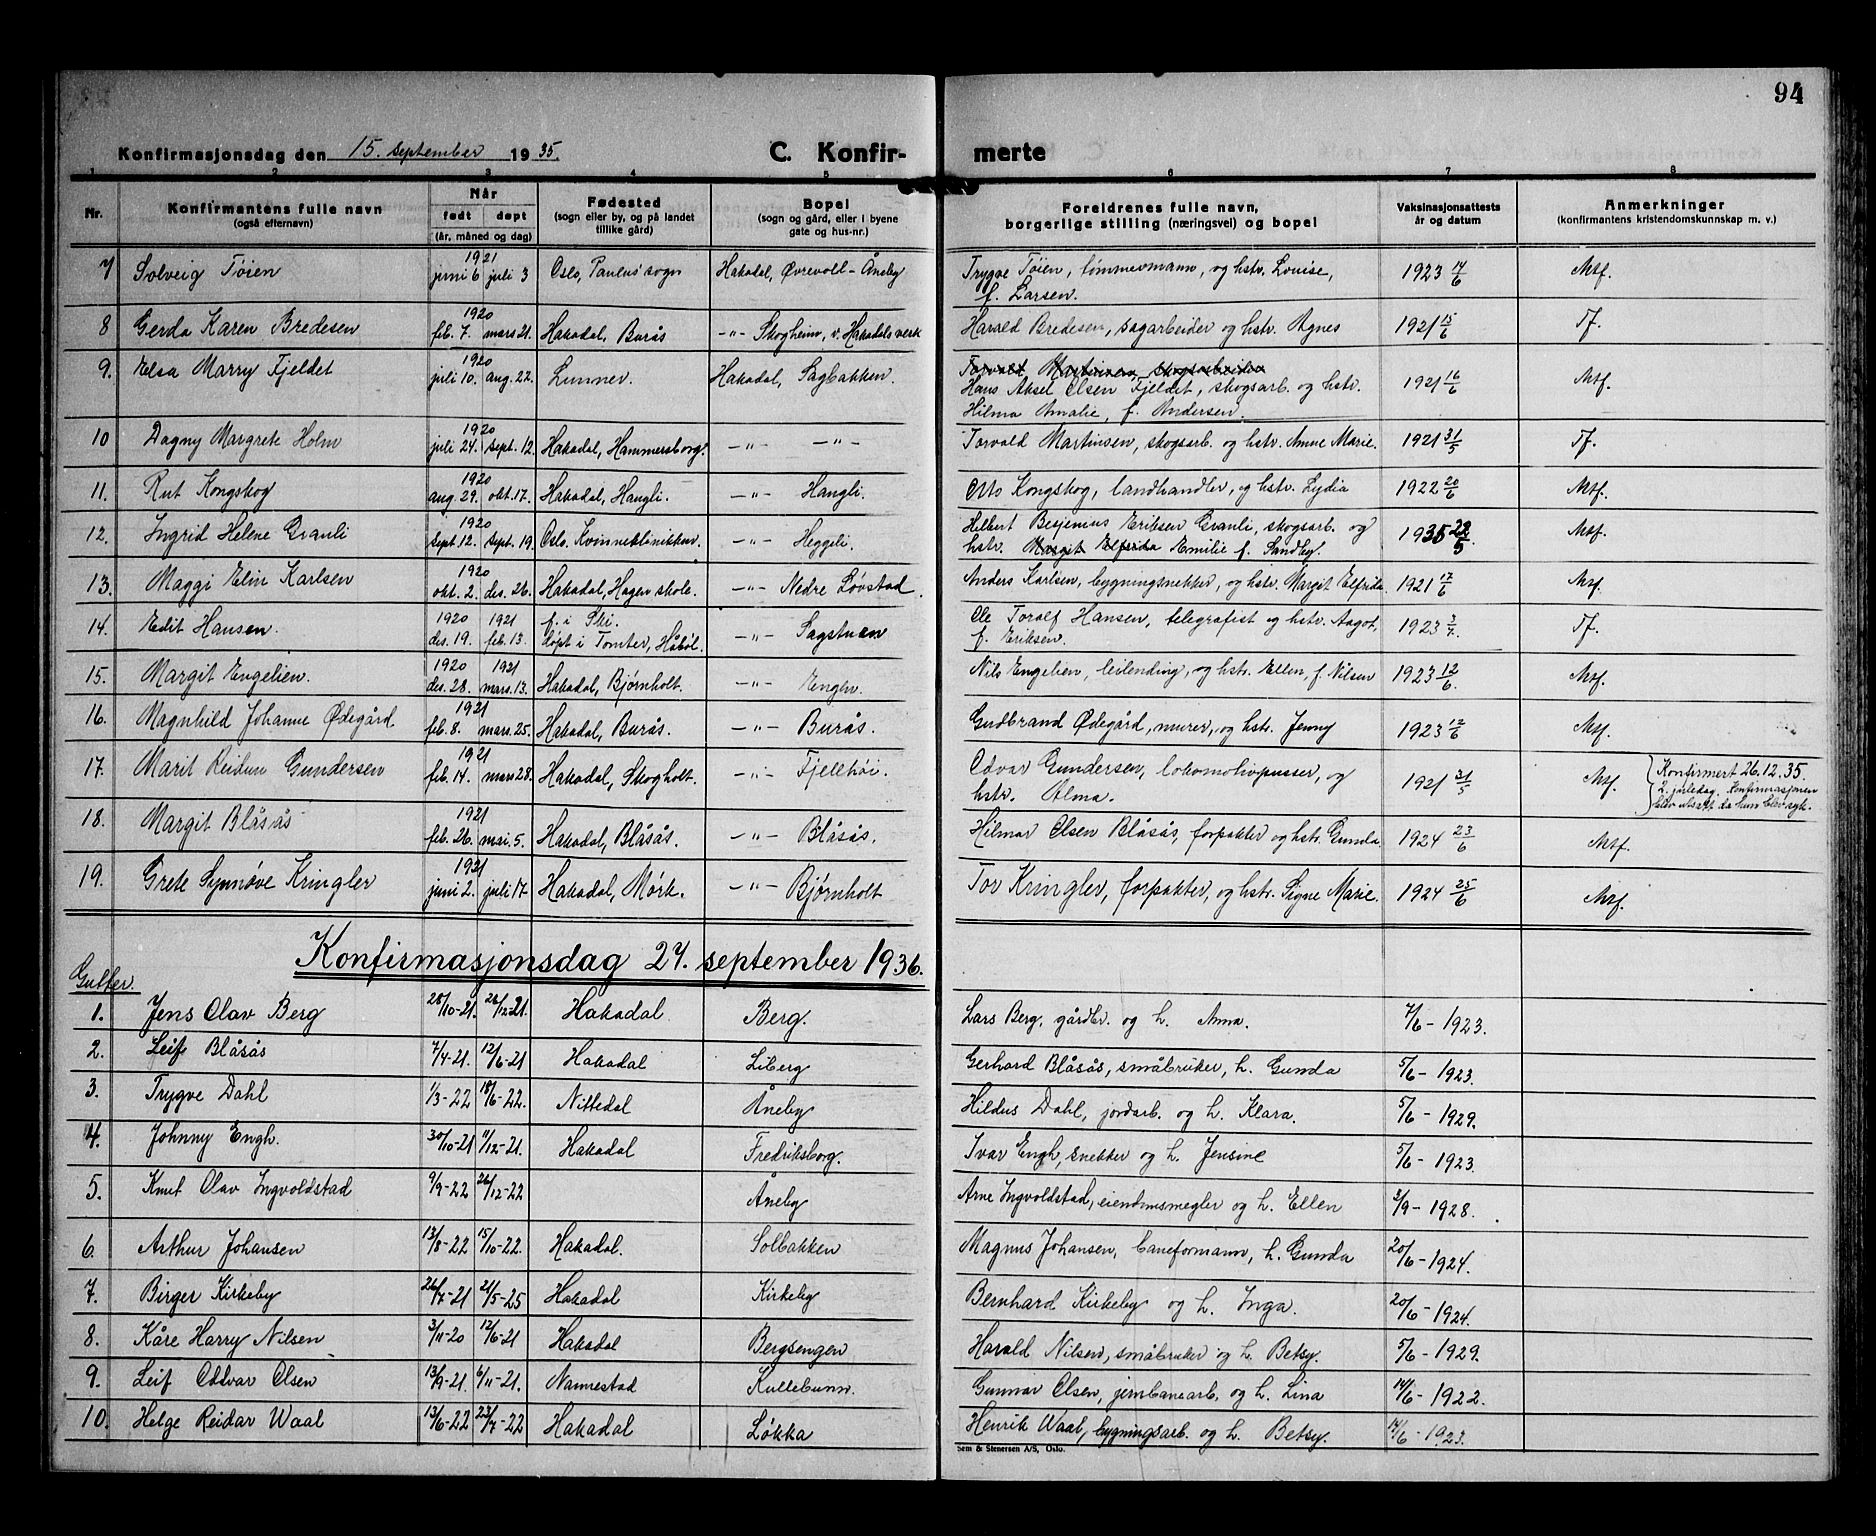 94
Konfirmasjonsdag den 15. september 1935. C. Konfir- merte
1 2 3 4 5 6 7 8
Nr. Konfirmantens fulle navn (også efternavn) Når født døpt (år, måned og dag) Fødested (sogn eller by, og på landet tillike gård) Bopel (sogn og gård, eller i byene gate og hus-nr.) Foreldrenes fulle navn, borgerlige stilling (næringsvei) og bopel Vaksinasjonsattests år og datum Anmerkninger (konfirmantens kristendomskunnskap m. v.)
7 Solveig Tøien 1921 juni 6 juli 3 Oslo, Paulus sogn Hakadal, Øvrevoll - Åneby Trygve Tøien, tømmermann, og hstr. Louise, f. Larsen. 1923 14/6 Mtf.
8 Gerda Karen Bredesen 1920 feb. 7. mars 21. Hakadal, Burås -"- Skogheim, v. Hakadals verk Harald Bredesen, sagarbeider og hstr. Agnes 1921 15/6 Tf.
9. Elsa Marry Fjeldet 1920 juli 10. aug. 22. Lunner. Hakadal, Sagbakken. Torvald Martinsen, skogsarbeider Hans Aksel Olsen Fjeldet, skogsarb. og hstr. Hilma Amalie, f. Andersen. 1921 16/6 Mtf.
10 Dagny Margrete Holm 1920 juli 24. sept. 12. Hakadal, Hammersborg. -"- -"- Torvald Martinsen, skogsarb. og hstr. Anne Marie. 1921 31/5 Tf.
11. Rut Kongskog 1920 aug. 29. okt. 17. Hakadal, Haugli. -"- Haugli. Otto Kongskog, landhandler, og hstr. Lydia 1922 20/6 Mtf.
12. Ingrid Helene Granli 1920 sept 12. sept. 19. Oslo. Kvinneklinikken. -"- Heggeli. Helbert Eriksen Granli, skogsarb. og hstr. Margit Elfrida Emilie f. Sandby. 1935 22/5. Mtf.
13. Maggi Elin Karlsen 1920 okt. 2. des. 26. Hakadal, Hagen skole. -"- Nedre Løvstad. Anders Karlsen, bygningsnekker, og hstr. Margit Elfrida. 1921 17/6 Mtf.
14. Edit Hansen. 1920 des. 19. 1921 feb. 13. f. i Ski. døpt i Tomter, Håbøl. -"- Sagstuen Ole Toralf Hansen, telegrafist og hstr. Aagot, f. Eriksen. 1923 3/7. Tf.
15. Margit Engelien. 1920 des. 28. 1921 mars. 13. Hakadal, Bjørnholt. -"- Engen. Nils Engelien, leilending, og hstr. Ellen, f. Nilsen 1923 12/6. Mtf.
16. Magnhild Johanne Ødegård 1921 feb. 8. mars. 25. Hakadal, Burås. -"- Burås. Gudbrand Ødegård, murer, og hstr. Jenny 1923 12/6 Mtf.
17. Marit Reidun Gundersen 1921 feb. 14. mars 28. Hakadal, Skogholt. -"- Fjellhøi. Odvar Gundersen, lokomotivpusser, og hstr. Alma. 1921 31/5 Mtf. Konfirmert 26.12.35. 2. juledag. Konfirmasjonen blev utsatt da hun blev syk.
18. Margit Blåsås 1921 feb. 26. mai. 5. Hakadal, Blåsås. -"- Blåsås. Hilmar Olsen Blåsås, forpakter og hstr. Gunda 1924 23/6 Mtf.
19. Grete Synnøve Kringler 1921 juni 2. juli 17. Hakadal, Mørk. -"- Bjørnholt Tor Kringler, forpakter, og hstr. Signe Marie. 1924 25/6 Mtf.
Konfirmasjonsdag 27. september 1936.
Gutter.
1. Jens Olav Berg 28/10-21. 26/12-21. Hakadal Berg. Lars Berg, gårdbr. og h. Anna. 7/6 - 1923.
2. Leif Blåsås 7/4-21. 12/6-21 Hakadal Liberg Gerhard Blåsås, småbruker, h. Gunda 5/6 - 1923.
3. Trygve Dahl 1/3-22 18/6-22. Nittedal Åneby Hildus Dahl, jordarb. og h. Klara. 5/6 - 1929.
4. Johnny Engh. 30/10-21 11/12-21. Hakadal Fredriksborg. Ivar Engh, snekker og h. Jensine 5/6 - 1923
5. Knut Olav Ingvoldstad 9/9-22 26/12-22 Åneby Arne Ingvoldstad, eiendomsmegler og h. Ellen 3/9 - 1928.
6. Arthur Johansen 13/8-22 15/10-22. Hakadal. Solbakken Magnus Johansen, baneformann, h. Gunda 20/6 - 1924.
7. Birger Kirkeby 26/7-21 21/5-25 Hakadal Kirkeby Bernhard Kirkeby og h. Inga. 20/6 - 1924.
8. Kåre Harry Nilsen 3/11-20 12/6-21 Hakadal Bergsengen Harald Nilsen, småbruker og h. Betsy. 5/6 - 1929.
9. Leif Oddvar Olsen 13/9-21. 6/11-21. Nannestad Kullebunn. Gunnar Olsen, jernbanearb. og h. Lina 14/6 - 1922.
10. Helge Reidar Waal 13/6-22 23/7-22 Hakadal Løkka Henrik Waal, bygningsarb. og h. Betsy. 14/6 - 1923.
Sem & Stenersen A/S, Oslo.